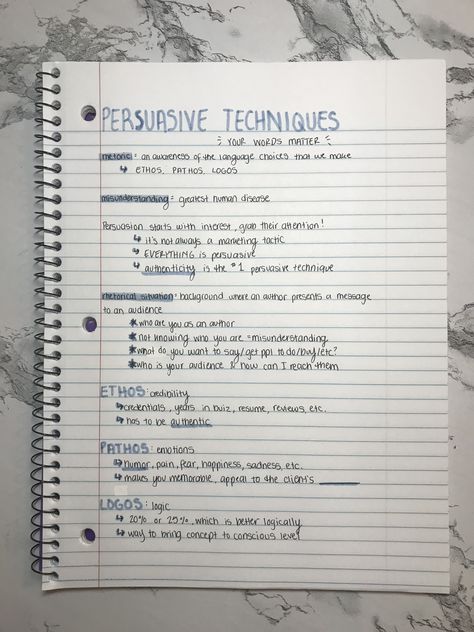 PERSUASIVE TECHNIQUES
YOUR WORDS MATTER
rhetoric: an awareness of the language choices that we make
↳ ETHOS, PATHOS, LOGOS
misunderstanding = greatest human disease
Persuasion starts with interest, grab their attention!
↳ it's not always a marketing tactic
↳ EVERYTHING is persuasive
↳ authenticity is the #1 persuasive technique
rhetorical situation: background where an author presents a message
to an audience
*who are you as an author
*not knowing who you are =misunderstanding
*what do you want to say/get ppl to do/buy/etc?
*who is your audience & how can I reach them
ETHOS: credibility
↳credentials, years in buiz, resume, reviews, etc.
↳has to be authentic
PATHOS: emotions
↳humor, pain, fear, happiness, sadness, etc.
↳makes you memorable, appeal to the client's
LOGOS: logic
↳ 20% or 25%, which is better logically
↳ way to bring concept to conscious level